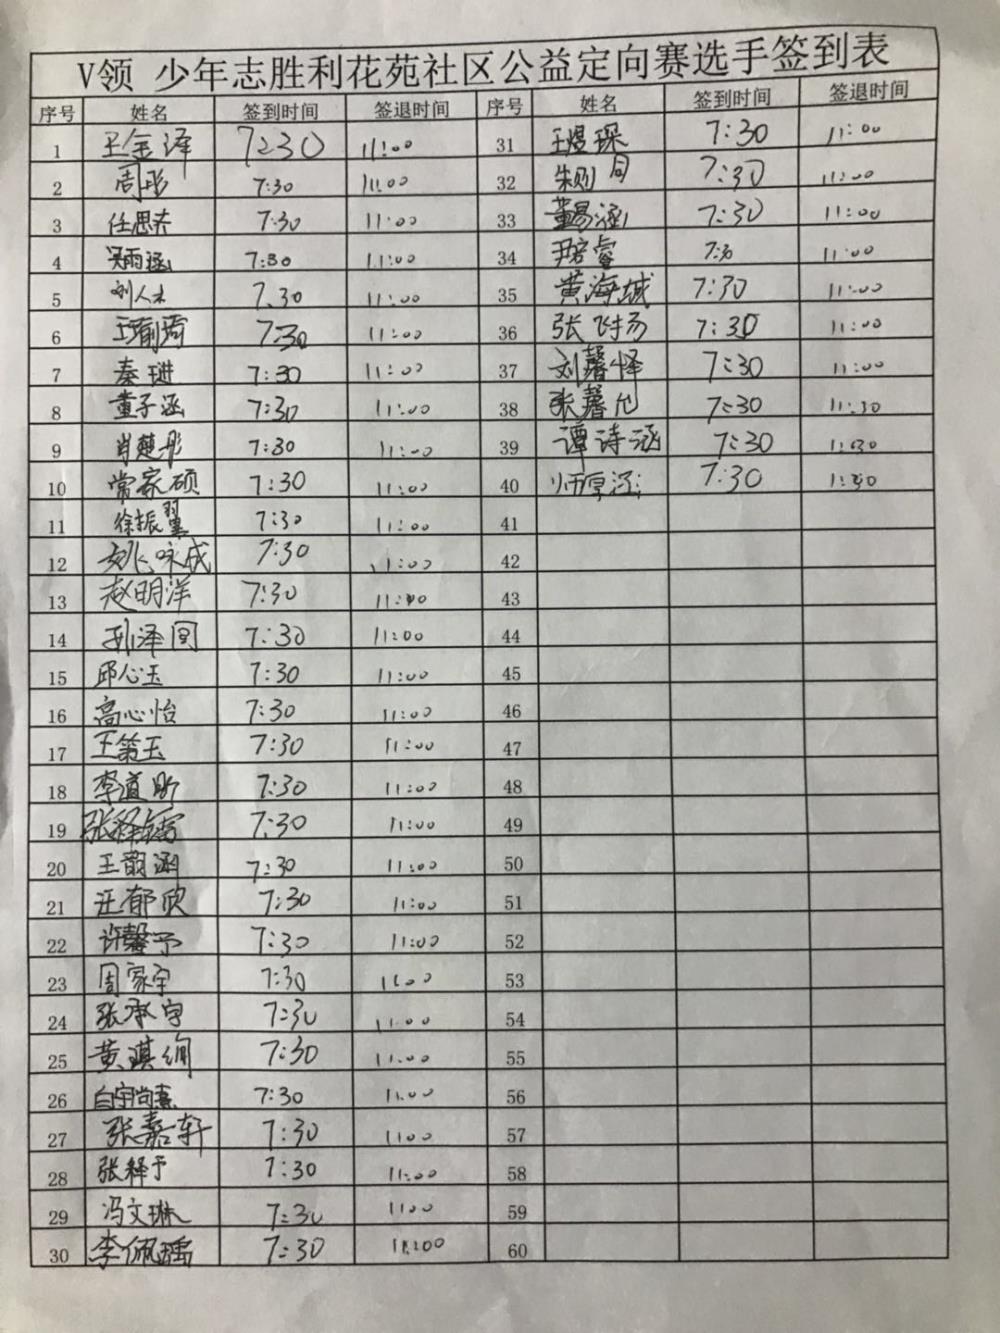 V领 少年志胜利花苑社区公益定向赛选手签到表
序号 姓名 签到时间 签退时间 序号 姓名 签到时间 签退时间
1 王金泽 7:30 11:00 31 王煜琛 7:30 11:00
2 周彤 7:30 11:00 32 朱则同 7:30 11:00
3 任思齐 7:30 11:00 33 董易涵 7:30 11:00
4 吴雨涵 7:30 11:00 34 尹睿 7:30 11:00
5 刘人杰 7:30 11:00 35 黄海城 7:30 11:00
6 王前琦 7:30 11:00 36 张飞扬 7:30 11:00
7 秦琎 7:30 11:00 37 刘馨怿 7:30 11:00
8 董子涵 7:30 11:00 38 张馨 7:30 11:30
9 肖楚彤 7:30 11:00 39 谭诗涵 7:30 11:30
10 常家硕 7:30 11:00 40 师厚涵 7:30 11:30
11 徐振翼 7:30 11:00 41
12 姚咏成 7:30 11:00 42
13 赵明洋 7:30 11:00 43
14 孙泽圆 7:30 11:00 44
15 邱心玉 7:30 11:00 45
16 高心怡 7:30 11:00 46
17 王笛玉 7:30 11:00 47
18 李道昕 7:30 11:00 48
19 张释 7:30 11:00 49
20 王韵涵 7:30 11:00 50
21 汪郁欣 7:30 11:00 51
22 许馨予 7:30 11:00 52
23 周家宇 7:30 11:00 53
24 张承宇 7:30 11:00 54
25 黄淇绚 7:30 11:00 55
26 白宇尚熹 7:30 11:00 56
27 张嘉轩 7:30 1100 57
28 张释予 7:30 11:00 58
29 冯文琳 7:30 1100 59
30 李佩瑶 7:30 11:00 60